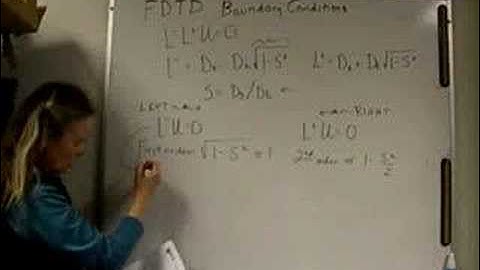 FDTD Boundary Conditions
L⁻L⁺U=0
L⁻ = Dₓ - Dₜ√1-S² L⁺ = Dₓ + Dₜ√1-S²
S = Dᵧ/Dₜ
LEFT RIGHT
L⁻U=0 L⁺U=0
First order √1-S² ≈ 1 2nd order ≈ 1 - S²/2